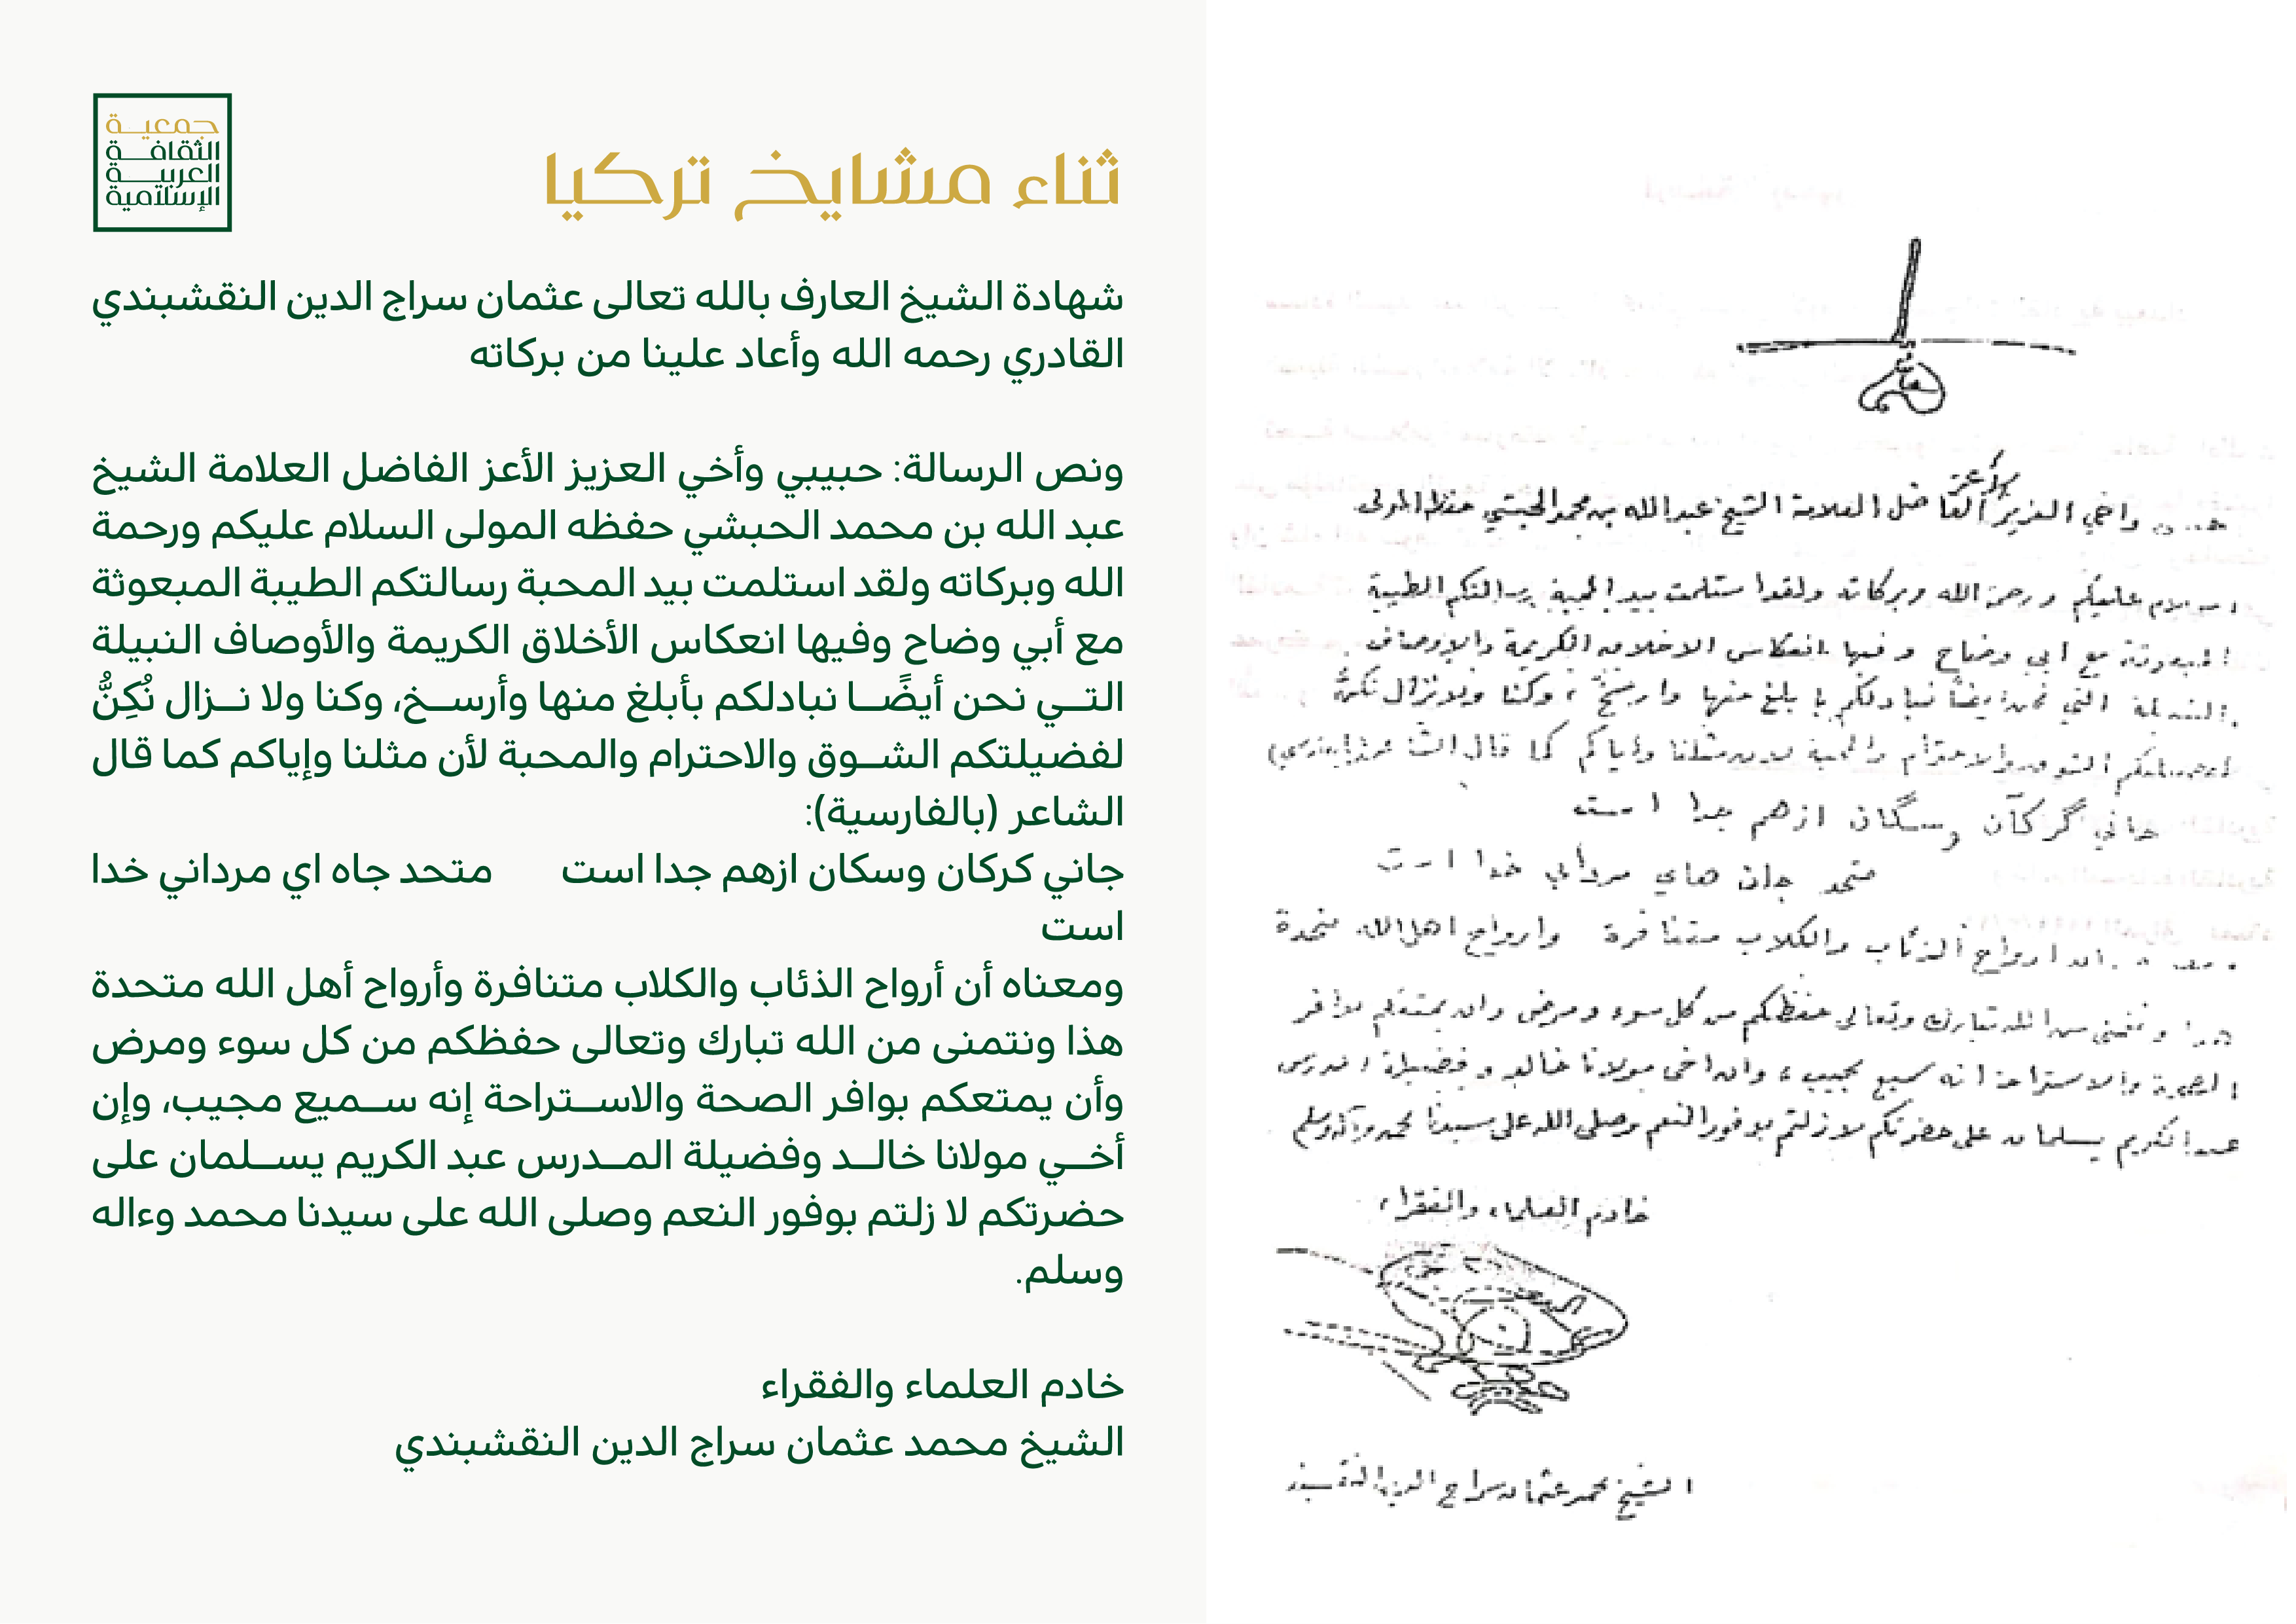 جمعية
الثقافة
العربية
الإسلامية
ثناء مشايخ تركيا
شهادة الشيخ العارف بالله تعالى عثمان سراج الدين النقشبندي
القادري رحمه الله وأعاد علينا من بركاته
ونص الرسالة: حبيبي وأخي العزيز الأعز الفاضل العلامة الشيخ
عبد الله بن محمد الحبشي حفظه المولى السلام عليكم ورحمة
الله وبركاته ولقد استلمت بيد المحبة رسالتكم الطيبة المبعوثة
مع أبي وضاح وفيها انعكاس الأخلاق الكريمة والأوصاف النبيلة
التـــي نحن أيضًـــا نبادلكم بأبلغ منها وأرســـخ، وكنا ولا نـــزال نُكِنُّ
لفضيلتكم الشـــوق والاحترام والمحبة لأن مثلنا وإياكم كما قال
الشاعر (بالفارسية):
جاني كركان وسكان ازهم جدا است متحد جاه اي مرداني خدا
است
ومعناه أن أرواح الذئاب والكلاب متنافرة وأرواح أهل الله متحدة
هذا ونتمنى من الله تبارك وتعالى حفظكم من كل سوء ومرض
وأن يمتعكم بوافر الصحة والاســـتراحة إنه ســـميع مجيب، وإن
أخـــي مولانا خالـــد وفضيلة المـــدرس عبد الكريم يســـلمان على
حضرتكم لا زلتم بوفور النعم وصلى الله على سيدنا محمد وءاله
وسلم.
خادم العلماء والفقراء
الشيخ محمد عثمان سراج الدين النقشبندي
واخي العزيز الأعز الفاضل العلامة الشيخ عبدالله بن محمد الحبشي حفظه المولى
السلام عليكم ورحمة الله وبركاته ولقد استلمت بيد المحبة رسالتكم الطيبة
المبعوثة مع ابي وضاح وفيها انعكاس الاخلاق الكريمة والاوصاف
النبيلة التي نحن ايضاً نبادلكم بابلغ منها وارسخ ، وكنا ولا نزال نكنُّ
لفضيلتكم الشوق والاحترام والمحبة لان مثلنا واياكم كما قال
جاني گرگان وسگان ازهم جدا است
متحد جان هاي مرداني خدا است
ارواح الذئاب والكلاب متنافرة وارواح اهل الله متحدة
هذا ونتمنى من الله تبارك وتعالى حفظكم من كل سوء ومرض وان يمتعكم بوافر
الصحة والاستراحة انه سميع مجيب ، وان اخي مولانا خالد وفضيلة المدرس
عبدالكريم يسلمان على حضرتكم لا زلتم بوفور النعم وصلى الله على سيدنا محمد وآله وسلم
خادم العلماء والفقراء
الشيخ محمد عثمان سراج الدين